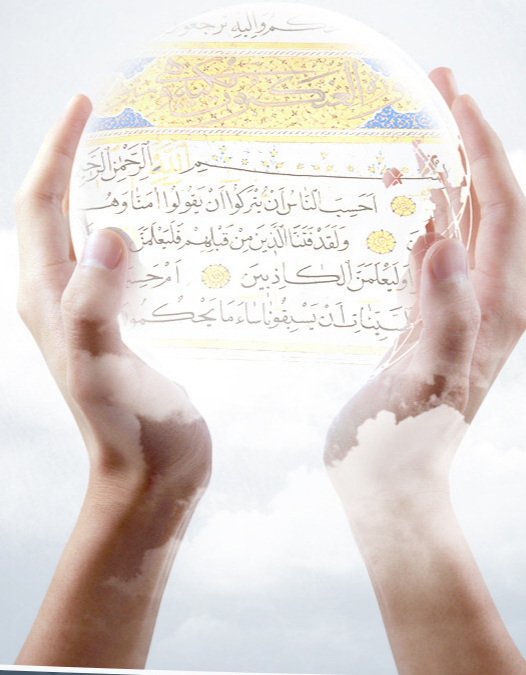 وَاِلَيْهِ تُرْجَعُونَ
العنكبوت
بسم اللهِ الرَّحْمٰنِ الرَّحِيمِ
اَحَسِبَ النَّاسُ اَنْ يُتْرَكُوا اَنْ يَقُولُوا اٰمَنَّا
وَلَقَدْ فَتَنَّا الَّذِينَ مِنْ قَبْلِهِمْ فَلَيَعْلَمَنَّ
وَلَيَعْلَمَنَّ الْكَاذِبِينَ اَمْ
اَنْ يَسْبِقُونَا سَاءَ مَا